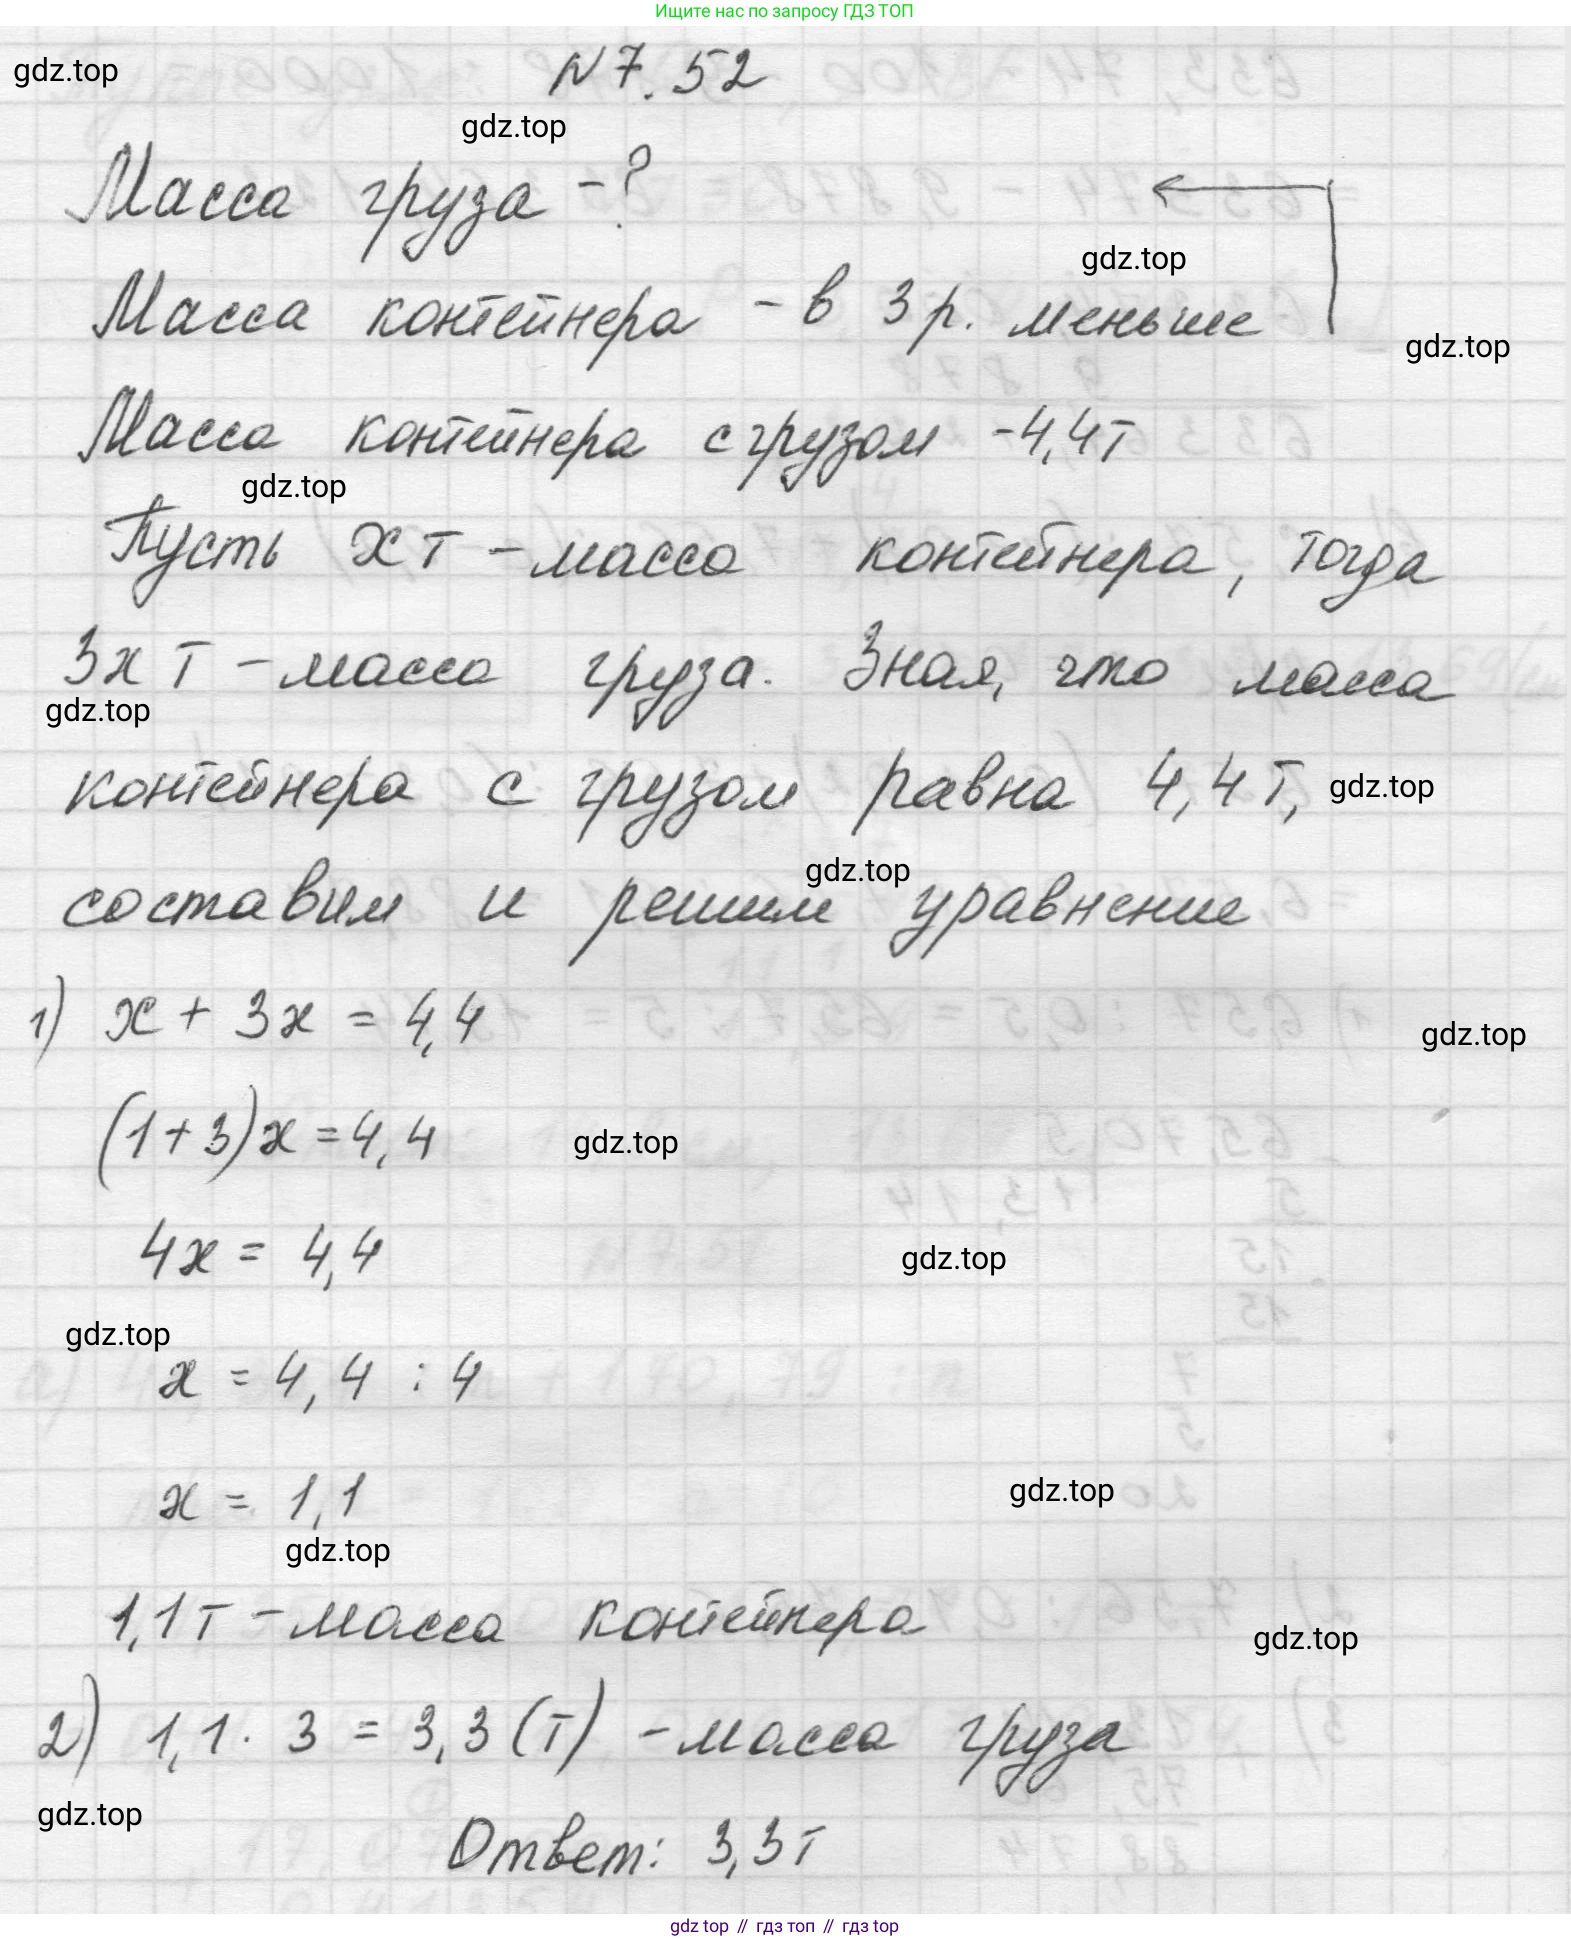 Ищите нас по запросу ГДЗ ТОП
N 7. 52
gdz.top
gdz.top
Масса груза - ?
gdz.top
Масса контейнера - в 3 р. меньше
gdz.top
Масса контейнера с грузом - 4,4т
gdz.top
Пусть x т - масса контейнера, тогда
3x т - масса груза. Зная, что масса
gdz.top
контейнера с грузом равна 4,4 т,
gdz.top
gdz.top
составим и решим уравнение
1) x + 3x = 4,4
gdz.top
(1+3)x = 4,4
gdz.top
4x = 4,4
gdz.top
gdz.top
x = 4,4 : 4
x = 1,1
gdz.top
gdz.top
1,1т - масса контейнера
gdz.top
2) 1,1 · 3 = 3,3 (т) - масса груза
gdz.top
Ответ: 3,3т
gdz top // гдз топ // гдз top